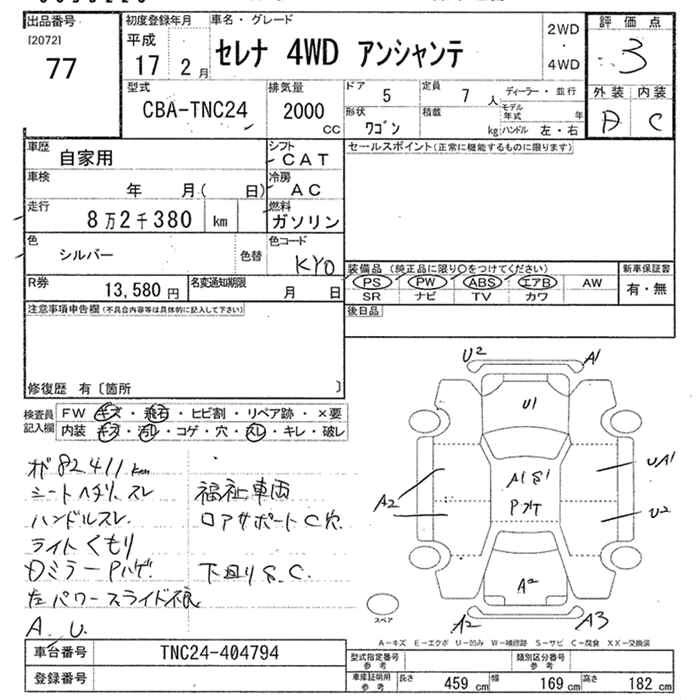 出品番号
[2072]
77
初度登録年月
平成
17 2月
車名・グレード
セレナ 4WD アンシャンテ
2WD
・
4WD
評価点
3
外装 内装
A C
型式
CBA-TNC24
排気量
2000
CC
ドア 5
定員 7人
ディーラー・並行
モデル年式 年
形状 ワゴン
積載 kg
ハンドル 左・右
車歴 自家用
シフト CAT
車検 年 月( 日)
冷房 AC
走行 8万2千380 km
燃料 ガソリン
色 シルバー 色替
色コード KY0
R券 13,580円
名変通知期限 月 日
セールスポイント(正常に機能するものに限ります)
装備品(純正品に限り○をつけてください)
PS PW ABS エアB AW
SR ナビ TV カワ
新車保証書
有・無
後日品
注意事項申告欄(不具合内容等は具体的に記入して下さい)
修復歴 有〔箇所 〕
検査員記入欄
FW キズ・飛石・ヒビ割・リペア跡・×要
内装 キズ・汚レ・コゲ・穴・スレ・キレ・破レ
82,411km
シートヘタリ、スレ
ハンドルスレ
ライトくもり
Dミラー Pハゲ
左パワースライド不良
A. U.
福祉車両
ロアサポートC穴
下廻りS.C.
U2 A1
U1
A2
UA1
U2
A2
A2 A3
スペア
A-キズ E-エクボ U-凹み W-補修跡 S-サビ C-腐食 XX-交換済
車台番号 TNC24-404794
登録番号
型式指定番号 参考
類別区分番号 参考
車庫証明用 参考 長さ 459cm 幅 169cm 高さ 182cm